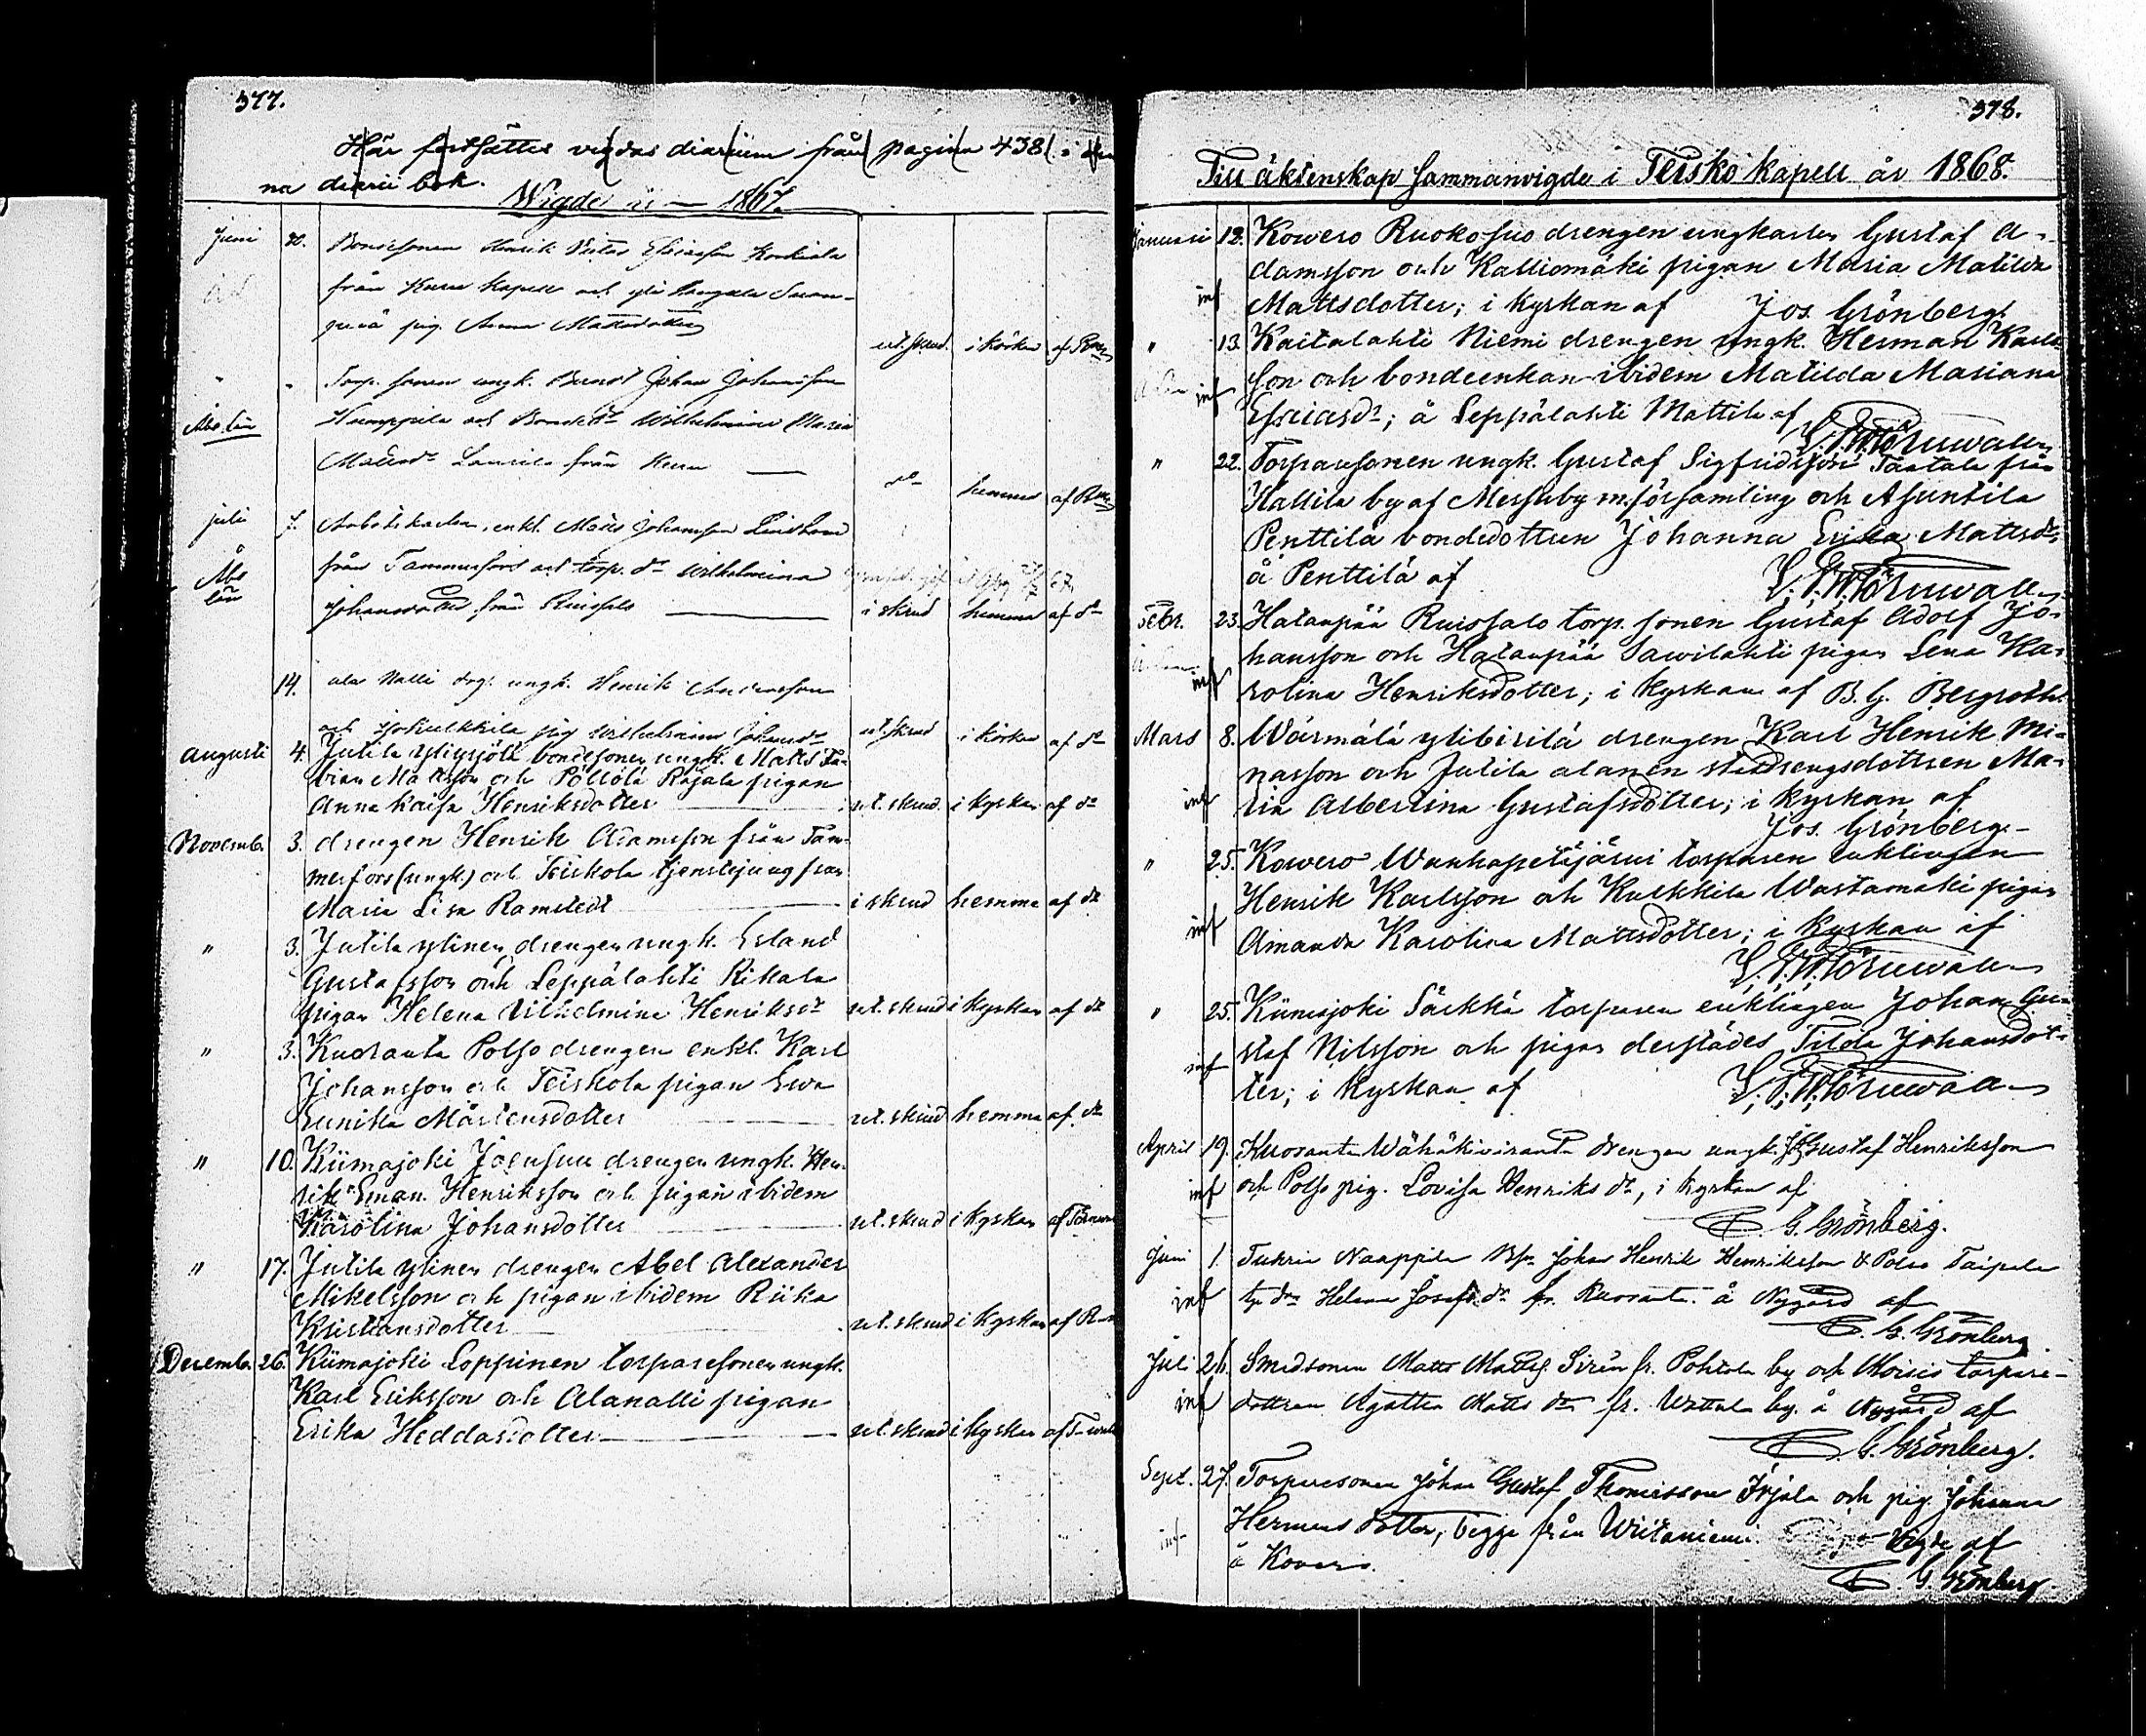 377.
Här fortsättes vigdas diarium från pagina 438 i den-
na diarii bok.
Wigde år 1867.
Juni
Bondesonen Henrik Esaiasson
från Kuru kapell och
pig. Anna Mattsdotter
ut. skrud. i körkan af
Torp. sonen ungk. Johan Johansson
Åbo län
och Wilhelmina Maria
Mattsdr från Kuru
do hemma af
Juli 7. enkl. Matts Johansson
Åbo län
från Tammerfors och torp. dr Wilhelmina
Johansdotter från Ruissalo i skrud hemma af do
14. ala Nalli drg. ungk. Henrik Andersson
och pig Wilhelmina Johansdr ut. skrud i körkan af do
Augusti 4. Jutila bondesonen ungk. Matts Fa-
bian Mattsson och Pöllölä Rajala pigan
Anna Kaisa Henriksdotter ut. skrud. i kyrkan af do
Novemb. 3. drengen Henrik Adamsson från Tam-
merfors (ungk.) och Teiskola tjenstejungfrun
Maria Lisa Ramstedt i skrud hemma af do
" 3. Jutila ylinen drengen ungk. Erland
Gustafsson och Leppälahti Rikala
pigan Helena Vilhelmina Henriksdr ut. skrud i kyrkan af do
" 3. Kuoranta Polso drengen enkl. Karl
Johansson och Teiskola pigan Ewa
Eunika Mårtensdotter ut. skrud hemma af do
" 10. Kiimajoki Joensuu drengen ungk. Hen-
rik Eman. Henriksson och pigan ibidem
Karolina Johansdotter ut. skrud i kyrkan af
" 17. Jutila ylinen drengen Abel Alexander
Mikelsson och pigan ibidem Riika
Kristiansdotter ut. skrud i kyrkan af
Decemb. 26. Kiimajoki Loppinen torparesonen ungk.
Karl Eriksson och Alanalli pigan
Erika Heddasdotter ut. skrud i kyrkan af
378.
Till äktenskap sammanvigde i Teisko kapell år 1868.
Januari 12. Kowero Ruokosuo drengen ungkarlen Gustaf A-
damsson och Kalliomäki pigan Maria Matilda
inf Mattsdotter; i kyrkan af Jos. Grönberg
" 13. Kaitalahti Niemi drengen ungk. Herman Karls-
inf son och bondeenkan ibidem Matilda Mariana
Esaiasdr; å Leppälahti Mattila af
" 22. Torparesonen ungk. Gustaf Sigfridsson Tantala från
Hallila by af Messuby m. församling och Asuntila
Penttilä bondedottren Johanna Erika Mattsdr
å Penttilä af
Febr. 23. Hatanpää Ruissalo torp. sonen Gustaf Adolf Jo-
hansson och Hatanpää Sawilahti pigan Lena Ka-
inf rolina Henriksdotter; i kyrkan af B. G. Bergroth.
Mars 8. Wärmälä ylibirilä drengen Karl Henrik Mi-
nasson och Jutila alanen statdrengsdottren Ma-
inf ria Albertina Gustafsdotter; i kyrkan af
Jos. Grönberg
" 25. Kowero Wanhapetäjärvi torparen enklingen
Henrik Karlsson och Kulkkila Wastamäki pigan
inf Amanda Karolina Mattsdotter; i kyrkan af
" 25. Kiimajoki Särkkä torparen enklingen Johan Gu-
staf Nilsson och pigan derstädes Tilda Johansdot-
inf ter; i kyrkan af
April 19. Kuoranta Wähäkiviranta drengen ungk. Gustaf Henriksson
inf och Polso pig. Lovisa Henriksdr, i kyrkan af
G. Grönberg.
Juni 1. Naappila Johan Henrik Henriksson & Polso Taipale
inf Helena Josefsdr fr. Kuoranta å Nygård af
G. Grönberg
Juli 26. Smedsonen Matts Matts. Sirén fr. Pohtola by och torpare-
inf dottren Agatha Mattsdr fr. Wattula by å Nygård af
G. Grönberg.
Sept. 27. Torparesonen Johan Gustaf Thomasson Irjala och pig. Johanna
Hermansdotter, begge från Wiitaniemi. Vigde af
inf å Kovero.
G. Grönberg.